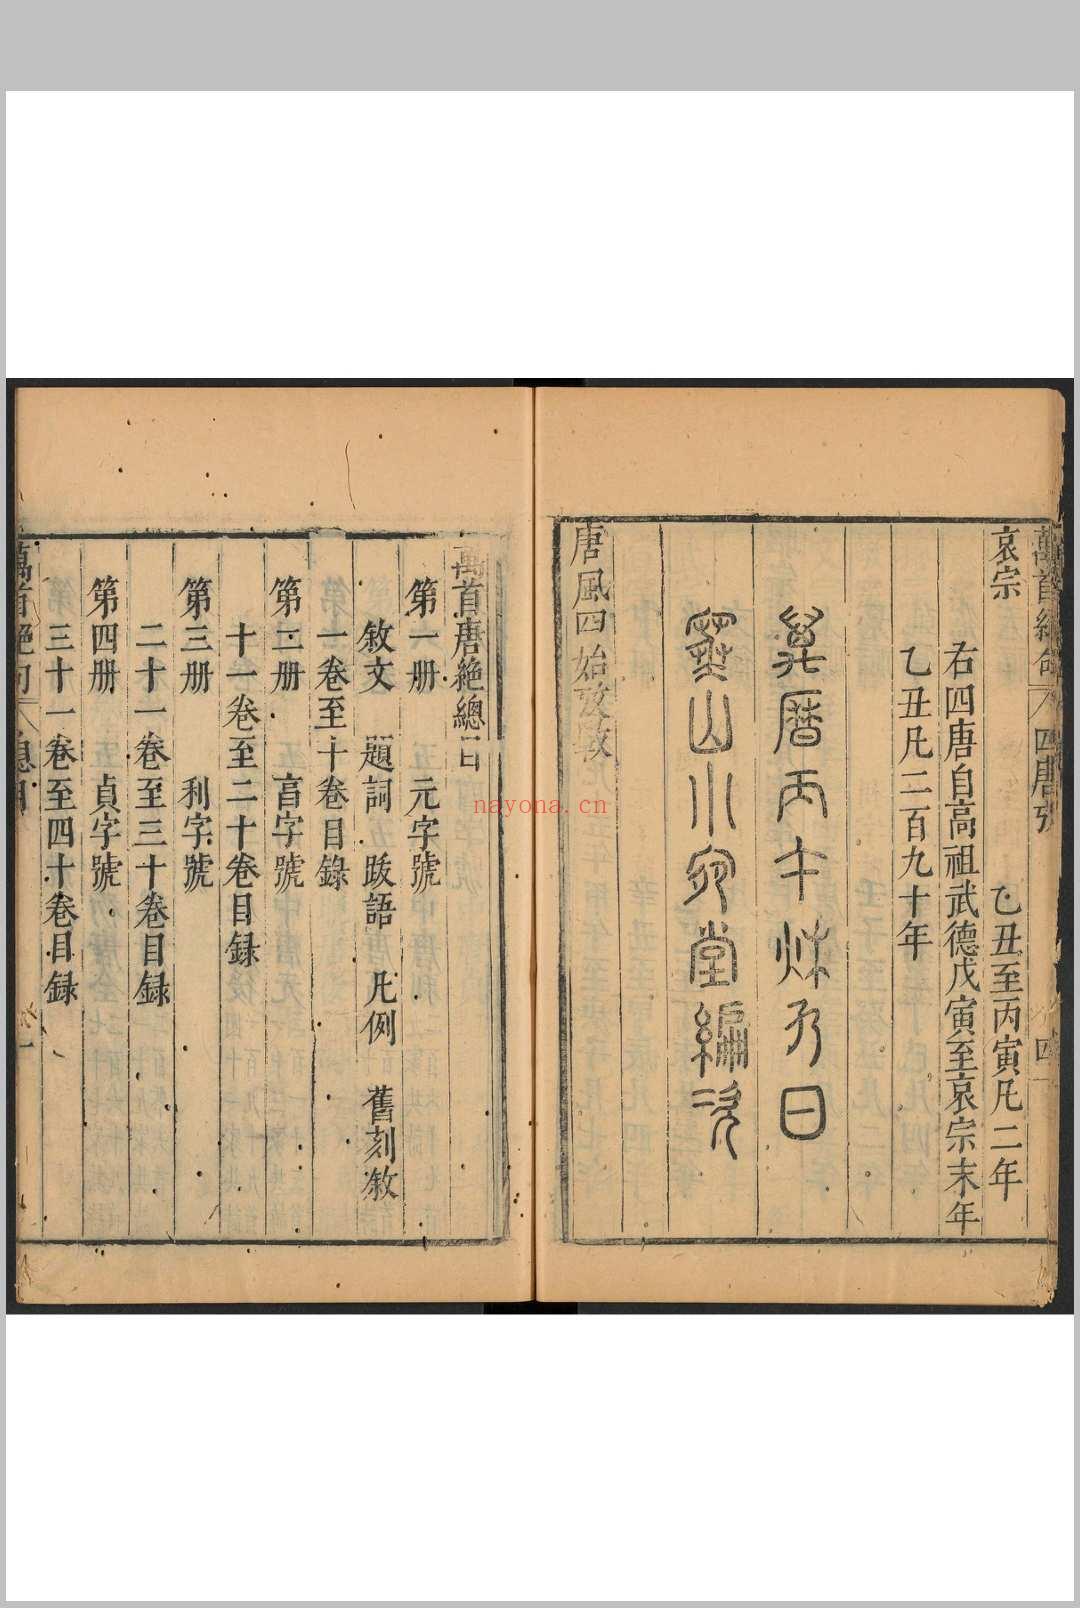 萬首絕句 四唐攷 四
哀宗 乙丑至丙寅凡二年
右四唐自高祖武德戊寅至哀宗末年
乙丑凡二百九十年
萬曆丙午秌九日
寒山小宛堂編次
唐風四始攷
萬首唐絕總目
第一册 元字號
敘文 題詞 跋語 凡例 舊刻敘
一卷至十卷目錄
第二册 亯字號
十一卷至二十卷目録
第三册 利字號
二十一卷至三十卷目録
第四册 貞字號
三十一卷至四十卷目録
萬首絕句 總目 一
nayona.cn